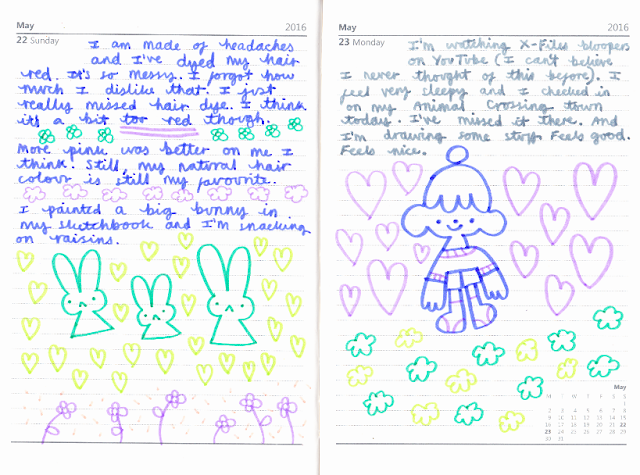 May 2016
22 Sunday
I am made of headaches
and I've dyed my hair
red. It's so messy. I forgot how
much I dislike that. I just
really missed hair dye. I think
it's a bit too red though.
More pink was better on me I
think. Still, my natural hair
colour is still my favourite.
I painted a big bunny in
my sketchbook and I'm snacking
on raisins.
May 2016
23 Monday
I'm watching X-Files bloopers
on YouTube (I can't believe
I never thought of this before). I
feel very sleepy and I checked in
on my Animal Crossing town
today. I've missed it there. And
I'm drawing some stuff. Feels good.
Feels nice.
May
M T W T F S S
1
2 3 4 5 6 7 8
9 10 11 12 13 14 15
16 17 18 19 20 21 22
23 24 25 26 27 28 29
30 31